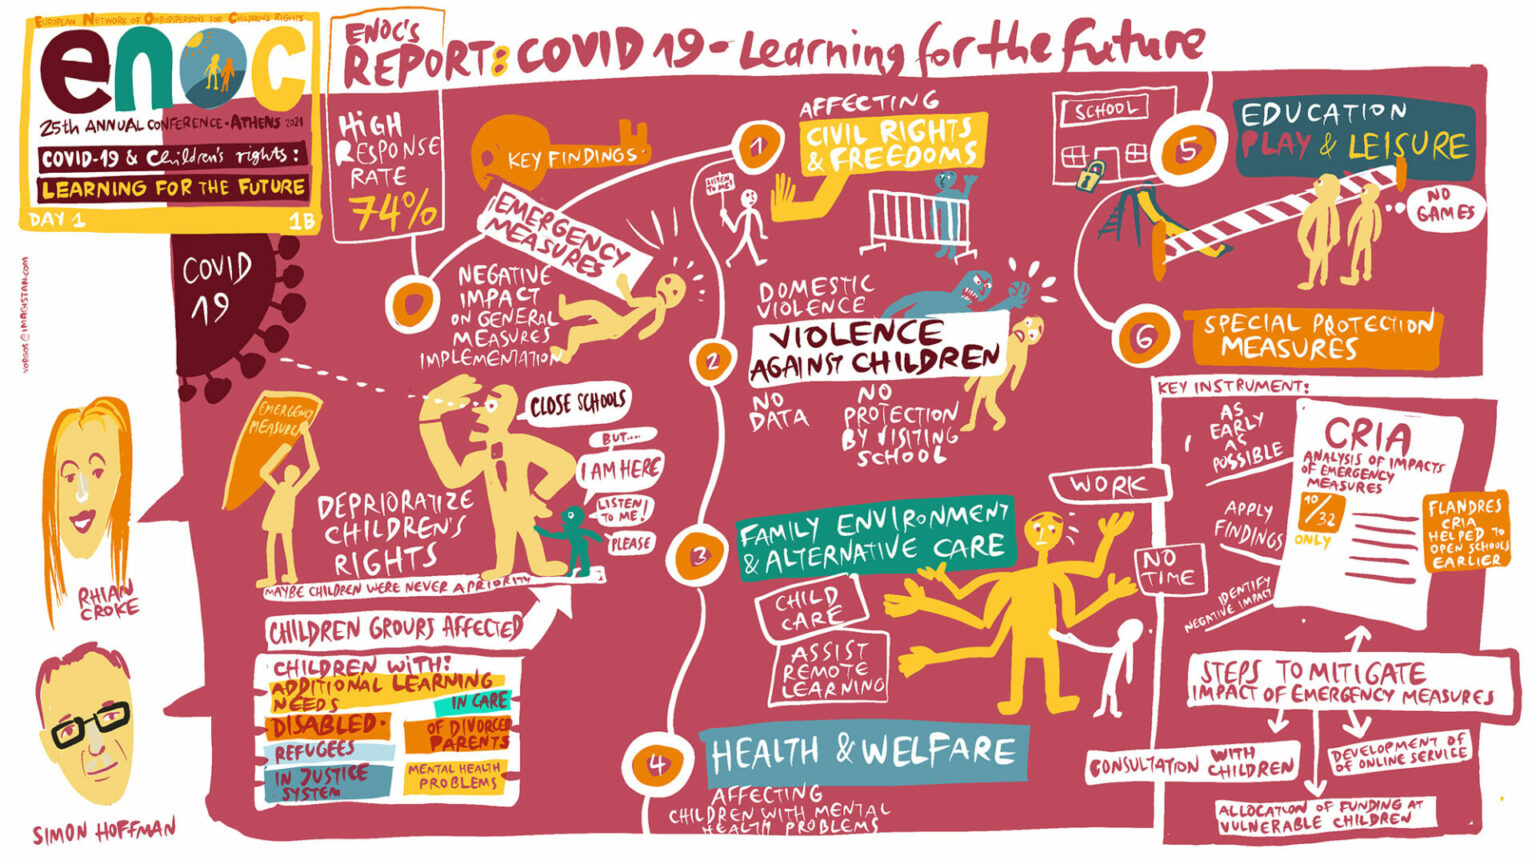 EUROPEAN NETWORK OF OMBUDSPERSONS FOR CHILDREN'S RIGHTS
enoc
25th ANNUAL CONFERENCE • ATHENS 2021
COVID-19 & Children's rights:
LEARNING FOR THE FUTURE
DAY 1
1B
ENOC'S
REPORT: COVID 19 - Learning for the Future
HIGH
RESPONSE
RATE
74%
KEY FINDINGS
COVID
19
YORGOS@IMAGISTAN.COM
RHIAN
CROKE
SIMON HOFFMAN
0
EMERGENCY
MEASURES
NEGATIVE
IMPACT
ON GENERAL
MEASURES
IMPLEMENTATION
EMERGENCY
MEASURES
CLOSE SCHOOLS
BUT....
I AM HERE
LISTEN
TO ME!
PLEASE
DEPRIORATIZE
CHILDREN'S
RIGHTS
MAYBE CHILDREN WERE NEVER A PRIORITY
CHILDREN GROURS AFFECTED
CHILDREN WITH:
ADDITIONAL LEARNING
NEEDS
IN CARE
DISABLED.
OF DIVORCED
PARENTS
REFUGEES
IN JUSTICE
SYSTEM
MENTAL HEALTH
PROBLEMS
1
AFFECTING
CIVIL RIGHTS
& FREEDOMS
LISTEN
TO ME
2
DOMESTIC
VIOLENCE
VIOLENCE
AGAINST CHILDREN
NO
DATA
NO
PROTECTION
BY VISITING
SCHOOL
3
FAMILY ENVIRONMENT
& ALTERNATIVE CARE
WORK
NO
TIME
CHILD
CARE
ASSIST
REMOTE
LEARNING
4
HEALTH & WELFARE
AFFECTING
CHILDREN WITH MENTAL
HEALTH PROBLEMS
SCHOOL
5
EDUCATION
PLAY & LEISURE
NO
GAMES
6
SPECIAL PROTECTION
MEASURES
KEY INSTRUMENT:
AS
EARLY
AS
POSSIBLE
APPLY
FINDINGS
IDENTIFY
NEGATIVE IMPACT
CRIA
ANALYSIS OF IMPACTS
OF EMERGENCY
MEASURES
10/32
ONLY
FLANDRES
CRIA
HELPED TO
OPEN SCHOOLS
EARLIER
STEPS TO MITIGATE
IMPACT OF EMERGENCY MEASURES
CONSULTATION WITH
CHILDREN
DEVELOPMENT OF
OF ONLINE SERVICE
ALLOCATION OF FUNDING AT
VULNERABLE CHILDREN